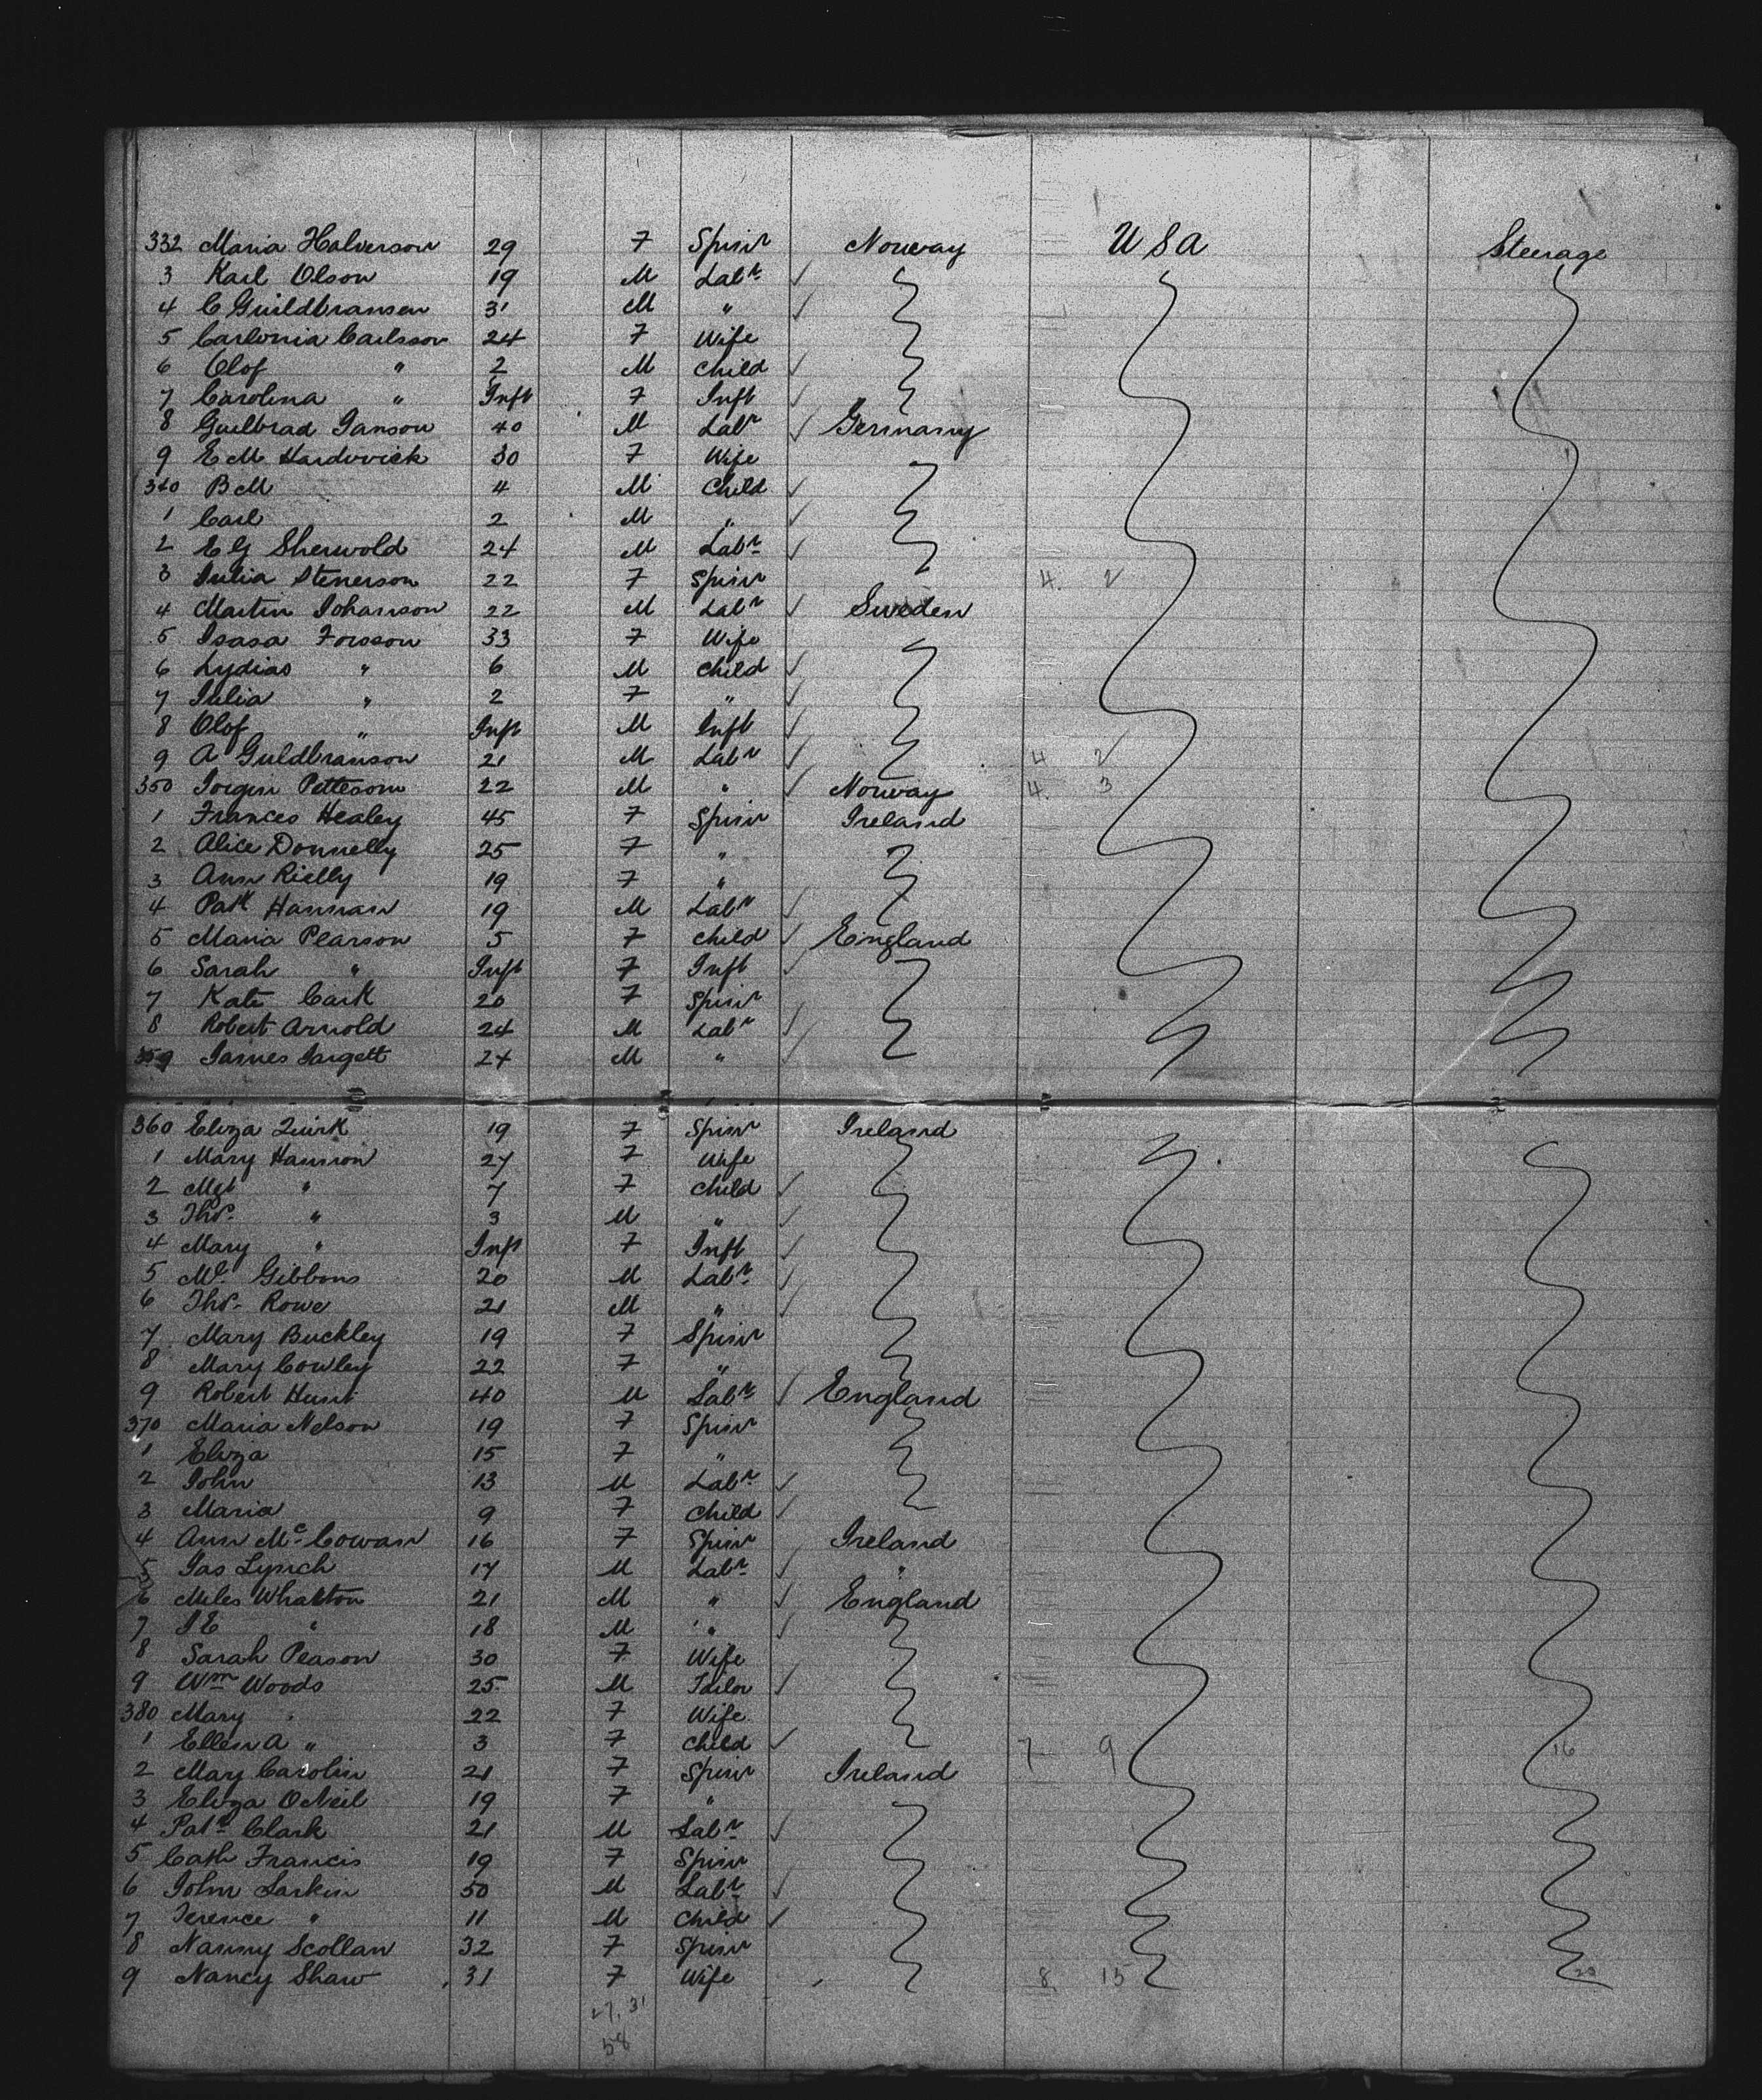 332 Maria Halverson 29 F Spinr Norway USA Steerage
3 Karl Olson 19 M Labr ✓
4 C Guildbransen 31 M " ✓
5 Carlonia Carlsson 24 F Wife
6 Olof " 2 M Child ✓
7 Carolina " Inft F Inft ✓
8 Guilbrad Janson 40 M Labr ✓ Germany
9 E M Hardwick 30 F Wife
340 B M 4 M Child ✓
1 Carl 2 M " ✓
2 E G Sherwold 24 M Labr ✓
3 Julia Stenerson 22 F Spinr 4 2
4 Martin Johanson 22 M Labr ✓ Sweden
5 Isasa Forsson 33 F Wife
6 Lydias " 6 M Child ✓
7 Julia " 2 F " ✓
8 Olof " Inft M Inft ✓
9 A Guldbranson 21 M Labr ✓ 4 2
350 Jorgin Petteson 22 M " ✓ Norway 4 3
1 Frances Healey 45 F Spinr Ireland
2 Alice Donnelly 25 F "
3 Ann Rielly 19 F "
4 Patk Hannan 19 M Labr ✓
5 Maria Pearson 5 F Child ✓ England
6 Sarah " Inft F Inft ✓
7 Kate Cark 20 F Spinr
8 Robert Arnold 24 M Labr ✓
359 James Jargett 24 M " ✓
360 Eliza Quirk 19 F Spinr Ireland
1 Mary Hannon 27 F Wife
2 Mgt " 7 F Child ✓
3 Thos " 3 M " ✓
4 Mary " Inft F Inft ✓
5 Ml Gibbons 20 M Labr ✓
6 Thos Rowe 21 M " ✓
7 Mary Buckley 19 F Spinr
8 Mary Cowley 22 F "
9 Robert Hunt 40 M Labr ✓ England
370 Maria Nelson 19 F Spinr
1 Eliza 15 F "
2 John 13 M Labr ✓
3 Maria 9 F Child ✓
4 Ann McCowan 16 F Spinr Ireland
5 Jas Lynch 17 M Labr ✓ "
6 Miles Whatton 21 M " ✓ England
7 J E " 18 M " ✓
8 Sarah Peason 30 F Wife
9 Wm Woods 25 M Tailor ✓
380 Mary " 22 F Wife
1 Ellen A " 3 F Child ✓ 7 9 16
2 Mary Carolin 21 F Spinr Ireland
3 Eliza ONeil 19 F "
4 Patk Clark 21 M Labr ✓
5 Cath Francis 19 F Spinr
6 John Larkin 50 M Labr ✓
7 Terence " 11 M Child ✓
8 Nanny Scollan 32 F Spinr
9 Nancy Shaw 31 F Wife 8 15 23
27.31
58